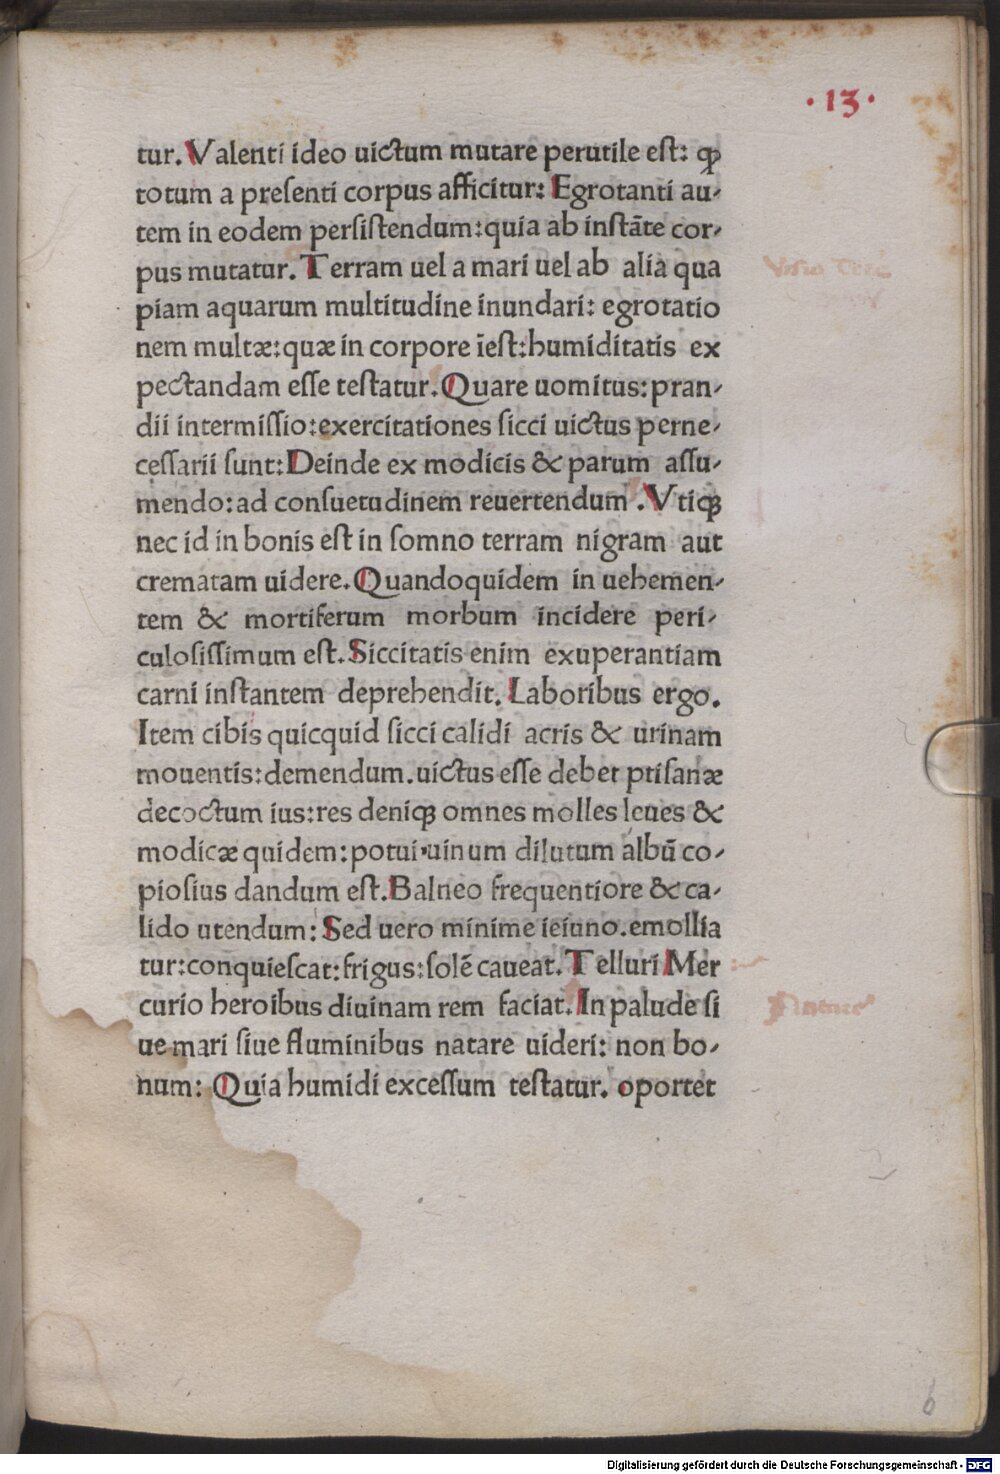 ·13·
tur. Valenti ideo uictum mutare perutile est: ꝙ
totum a presenti corpus afficitur: Egrotanti au-
tem in eodem persistendum: quia ab instāte cor-
pus mutatur. Terram uel a mari uel ab alia qua
piam aquarum multitudine inundari: egrotatio
nem multæ: quæ in corpore īest: humiditatis ex
pectandam esse testatur. Quare uomitus: pran-
dii intermissio: exercitationes sicci uictus perne-
cessarii sunt: Deinde ex modicis & parum assu-
mendo: ad consuetudinem reuertendum. Vtiqꝫ
nec id in bonis est in somno terram nigram aut
crematam uidere. Quandoquidem in uehemen-
tem & mortiferum morbum incidere peri-
culosissimum est. Siccitatis enim exuperantiam
carni instantem deprehendit. Laboribus ergo.
Item cibis quicquid sicci calidi acris & urinam
mouentis: demendum. uictus esse debet ptisanæ
decoctum ius: res deniqꝫ omnes molles leues &
modicæ quidem: potui uinum dilutum albū co-
piosius dandum est. Balneo frequentiore & ca-
lido utendum: Sed uero minime ieiuno. emollia
tur: conquiescat: frigus: solē caueat. Telluri Mer
curio heroibus diuinam rem faciat. In palude si
ue mari siue fluminibus natare uideri: non bo-
num: Quia humidi excessum testatur. oportet
6
Digitalisierung gefördert durch die Deutsche Forschungsgemeinschaft - DFG